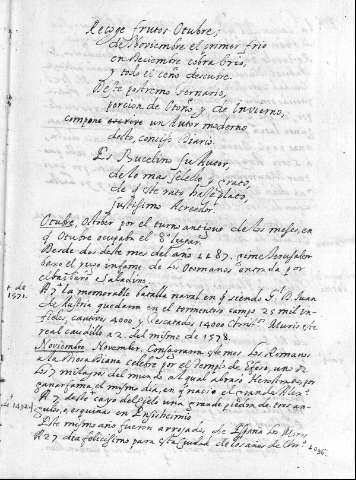 Recoge frutos Otubre,
de Noviembre el primer frio
en Deciembre cobra brio,
y todo el ceño descubre.
Deste postremo ternario,
porcion de Otoño, y de Invierno,
compone un Autor moderno
deste, conciso Diario.
Es Bucelino su Autor,
de lo mas selecto, y grato,
de q este rato haze plato,
justissimo Acreedor.
Otubre. October por el turno antiguo de los meses, en
q Otubre ocupaba el 8º lugar.
Desde dos deste mes del año 1187. gime Jerusalen
baxo el yugo infame de los Otomanos entrada por
el barbaro Saladino.
+ de 1571.
A 7 la memorable batalla naval en q siendo Gl. D. Juan
de Austria quedaron en el tormentoso campo 25 mil in-
fieles, cautivos 4000 y rescatados 14000 Murio este
real caudillo a 2. del mismo de 1578.
Noviembre. November. Consagraron este mes los Romanos
a la Diosa Diana celebre por el Templo de Efeso, uno de
los 7 milagros del mundo al qual abrasó Herostrato, por
ganar fama, el mismo dia, en q nació el grande Alex
de 1492
A 7 deste cayó del cielo una grande piedra de tres an-
gulos, o esquinas en Ensisheimio
Este mismo año fueron arrojados de España los
A 27 dia felicissimo para esta Ciudad de los años de 1096.